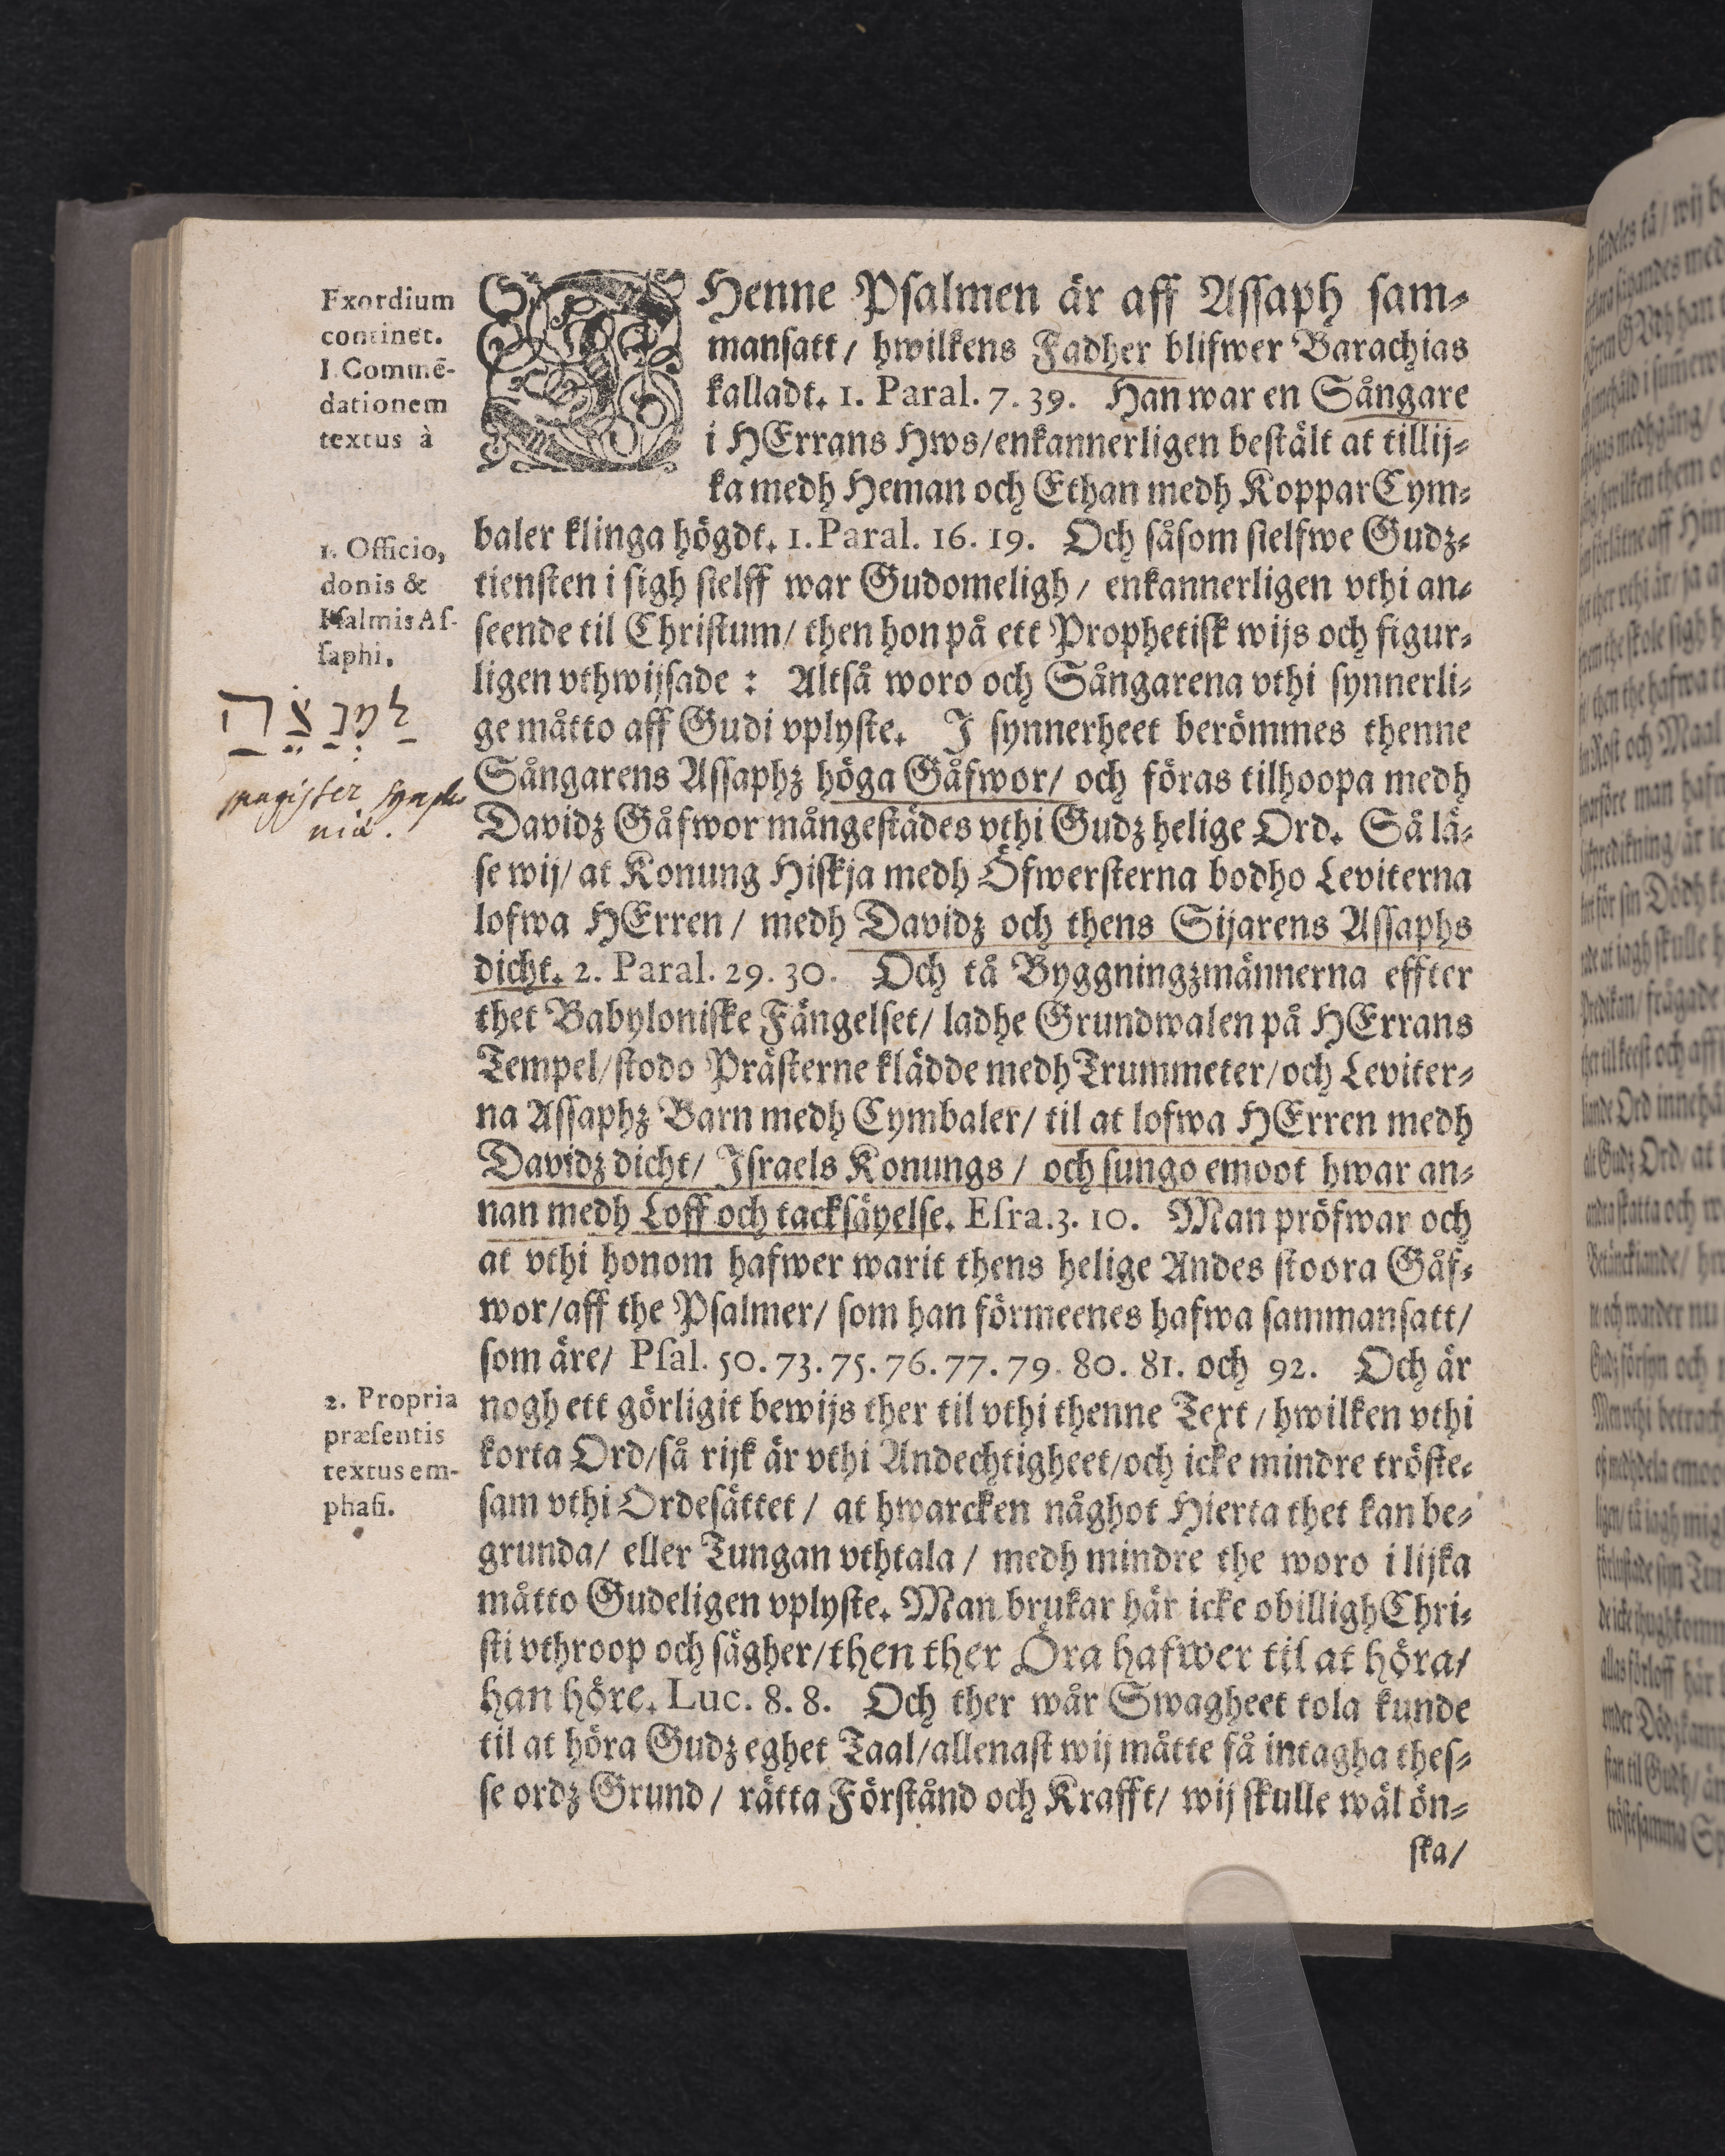 Exordium
continet.
I. Commē-
dationem
textus à
THenne Psalmen är aff Assaph sam-
mansatt / hwilkens Fadher blifwer Barachias
kalladt. 1. Paral. 7. 39. Han war en Sångare
i HErrans Hws/enkannerligen bestält at tillij-
ka medh Heman och Ethan medh KopparCym-
baler klinga högdt. 1. Paral. 16. 19. Och såsom sielfwe Gudz-
tiensten i sigh sielff war Gudomeligh / enkannerligen vthi an-
seende til Christum/ then hon på ett Prophetisk wijs och figur-
ligen vthwijsade : Altså woro och Sångarena vthi synnerli-
ge måtto aff Gudi vplyste. J synnerheet berömmes thenne
Sångarens Assaphz höga Gåfwor/ och föras tilhoopa medh
Davidz Gåfwor mångestädes vthi Gudz helige Ord. Så lä-
se wij/ at Konung Hiskja medh Öfwersterna bodho Leviterna
lofwa HErren / medh Davidz och thens Sijarens Assaphs
dicht. 2. Paral. 29. 30. Och tå Byggningzmännerna effter
thet Babyloniske Fängelset/ ladhe Grundwalen på HErrans
Tempel/stodo Prästerne klädde medh Trummeter/och Leviter-
na Assaphz Barn medh Cymbaler/ til at lofwa HErren medh
Davidz dicht/ Jsraels Konungs / och sungo emoot hwar an-
nan medh Loff och tacksäyelse. Esra. 3. 10. Man pröfwar och
at vthi honom hafwer warit thens helige Andes stoora Gåf-
wor/aff the Psalmer/ som han förmeenes hafwa sammansatt/
som äre/ Psal. 50. 73. 75. 76. 77. 79. 80. 81. och 92. Och är
nogh ett görligit bewijs ther til vthi thenne Text / hwilken vthi
korta Ord/så rijk är vthi Andechtigheet/och icke mindre tröste-
sam vthi Ordesättet / at hwarcken någhot Hierta thet kan be-
grunda/ eller Tungan vthtala / medh mindre the woro i lijka
måtto Gudeligen vplyste. Man brukar här icke obilligh Chri-
sti vthroop och sägher/then ther Öra hafwer til at höra/
han höre. Luc. 8. 8. Och ther wår Swagheet tola kunde
til at höra Gudz eghet Taal/allenast wij måtte få intagha thes-
se ordz Grund / rätta Förstånd och Krafft/ wij skulle wäl ön-
ska/
1. Officio,
donis &
Psalmis As-
saphi.
לַמְנַצֵּחַ
magister sympho
niæ.
2. Propria
præsentis
textus em-
phasi.